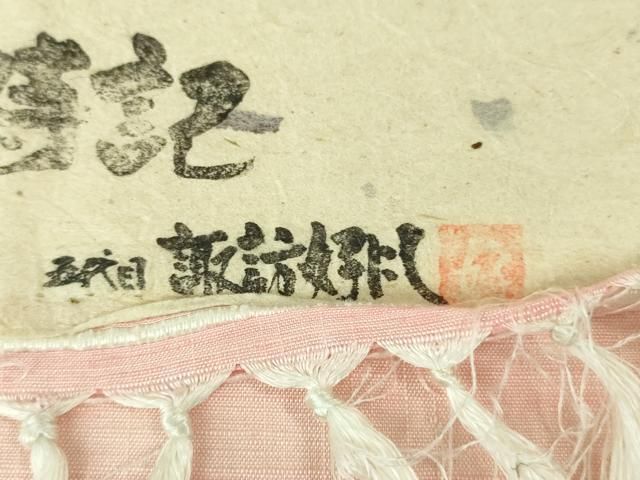 時記
五代目 諏訪好風